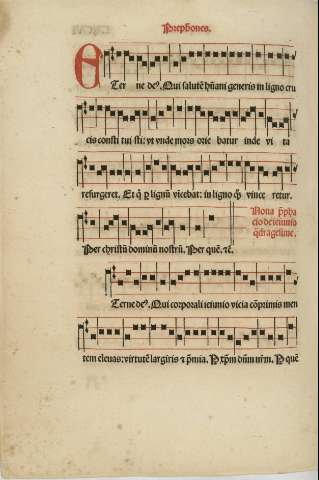 Prephones.
E
Ter ne de⁹. Qui salutē hūani generis in ligno cru
cis consti tui sti: vt vnde mors orie batur inde vi ta
resurgeret. Et q̄ p̱ lignū vīcebat: in ligno q̄ vince retur.
Per christū dominū nostrū. Per quē. ꝛc̄.
Noua p̄pha
cio de ieiunio
q̄dragesime.
Terne de⁹. Qui corporali ieiunio vicia cōprimis men
tem eleuas: virtutē largiris ⁊ p̄mia. P xp̄m dn̄m nr̄m. P quē